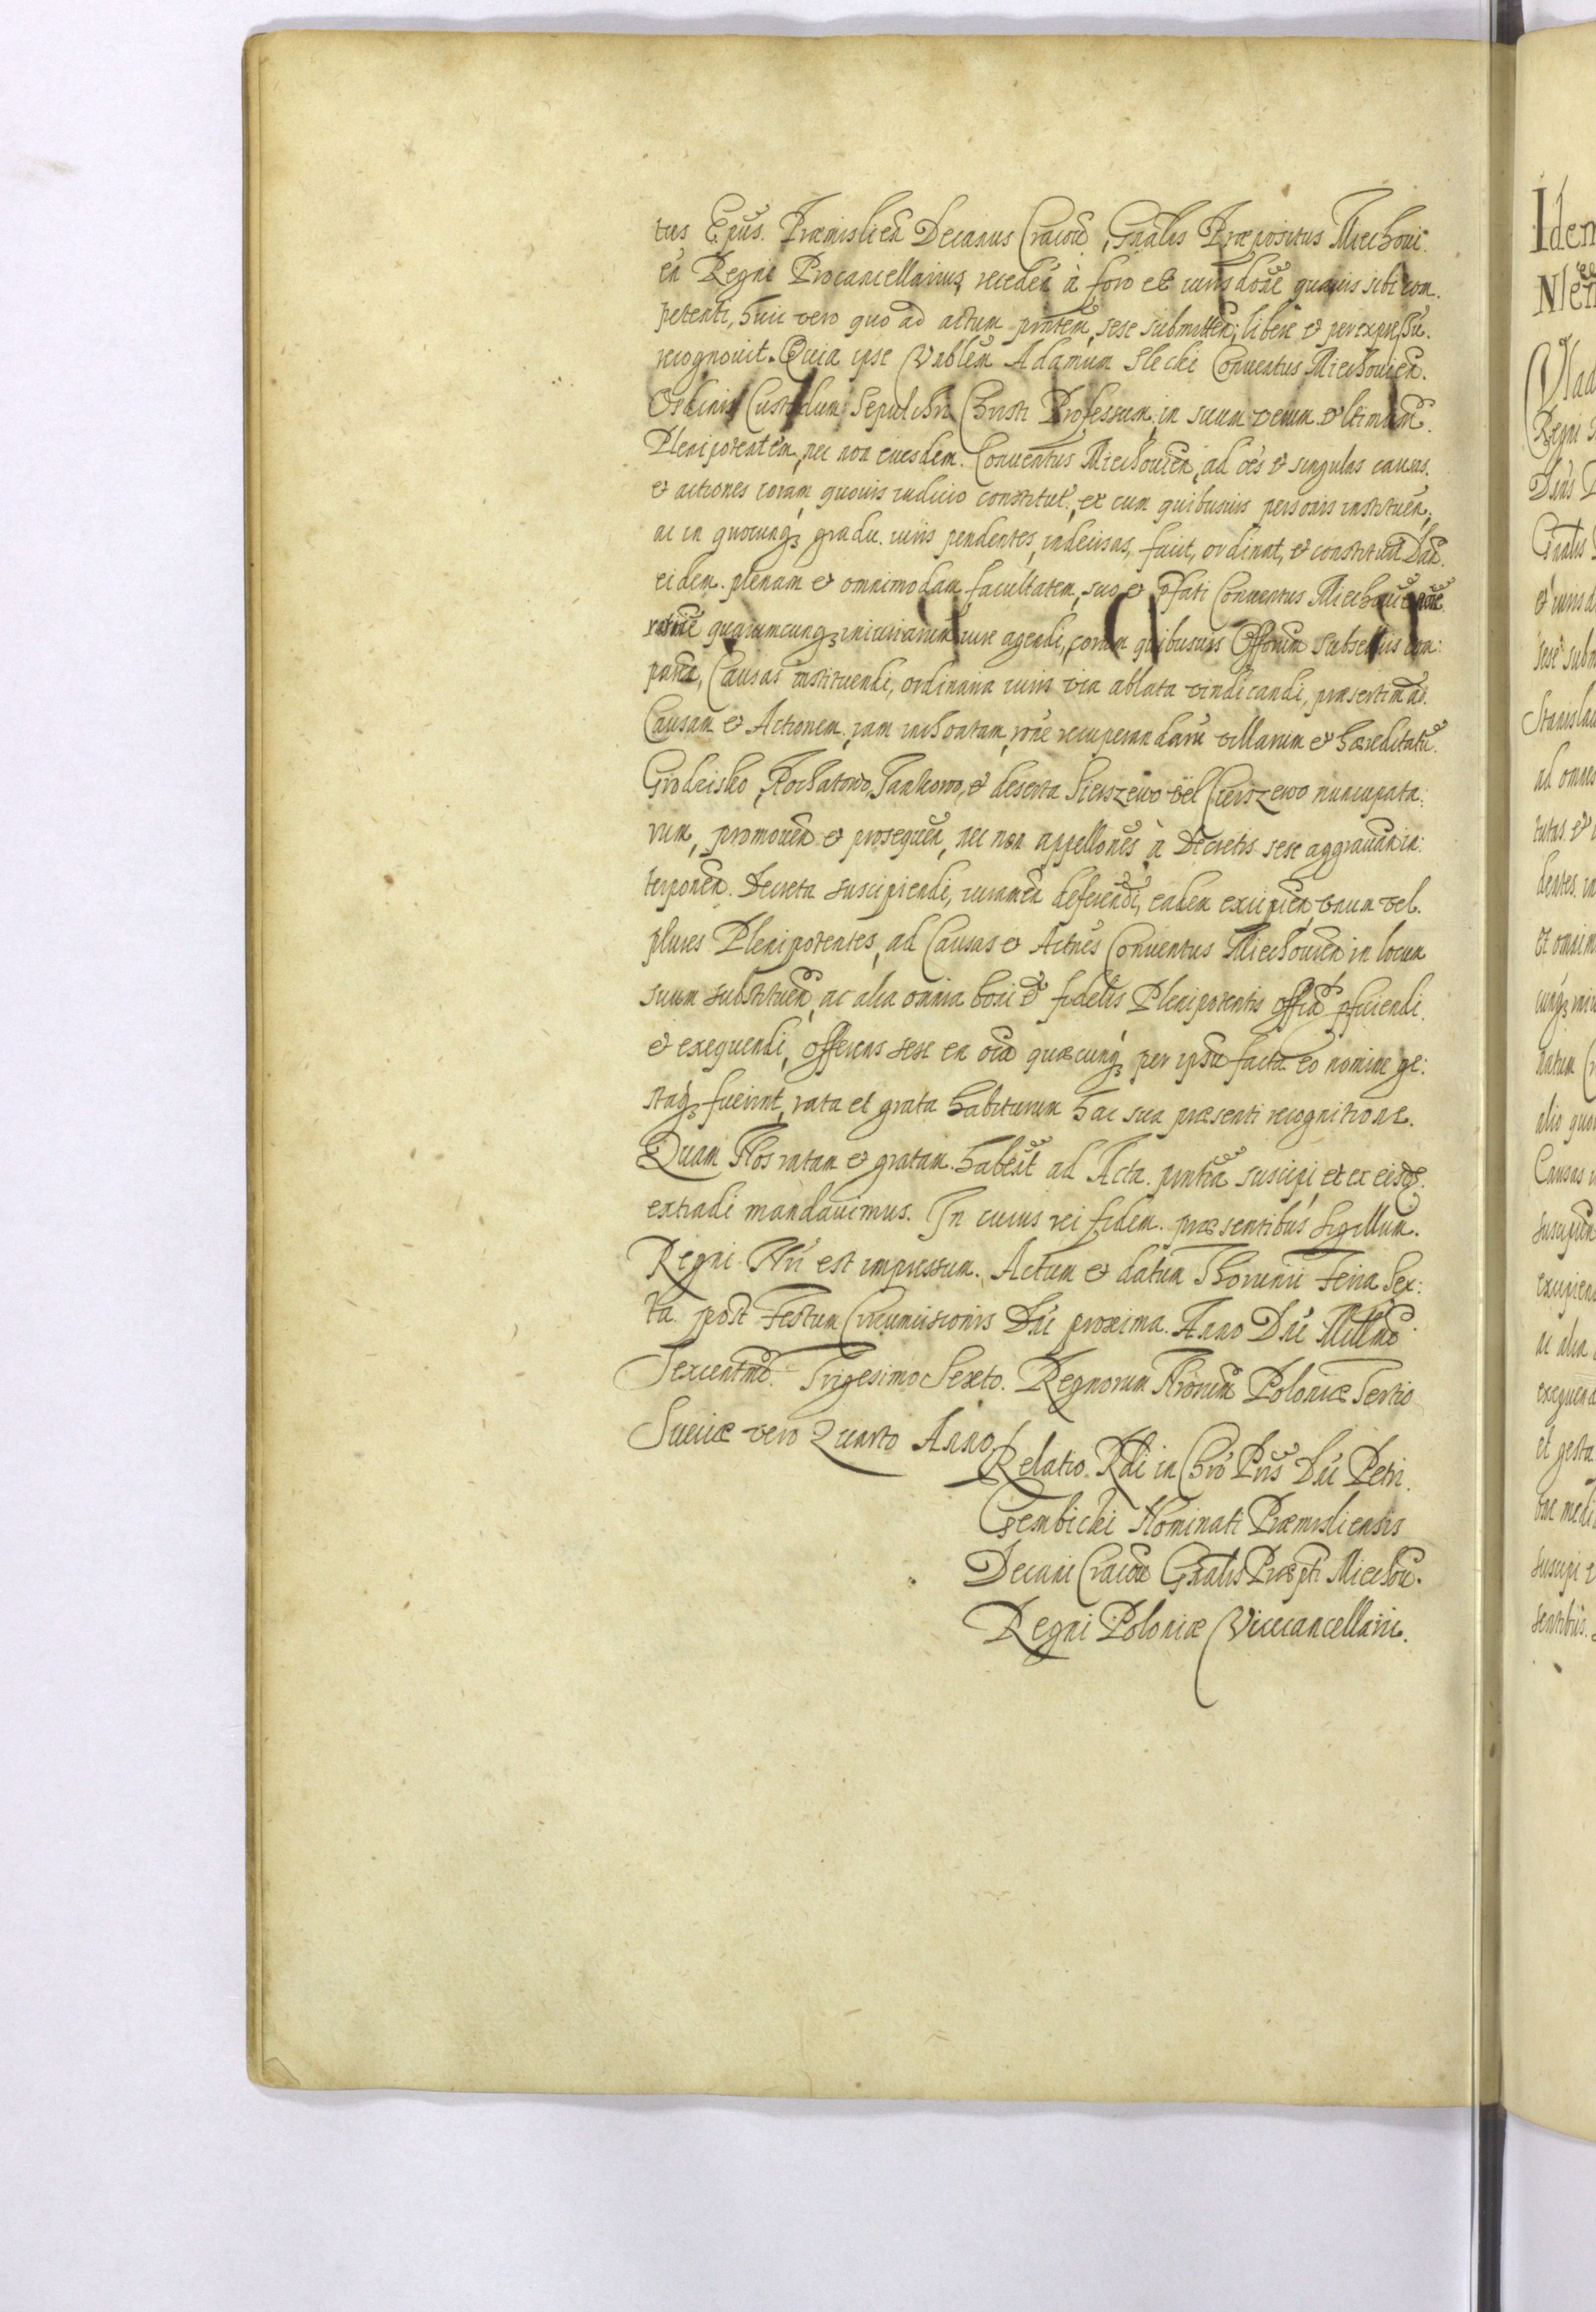 tus Epus. Præmislien Decanus Cracou, Gnalis Præpositus Miechoui
en Regni Procancellarius, receden à foro et iurisdone quauis sibi com.
petenti, huic vero quo ad actum pntem, sese submitten; libere et per expressu.
recognouit. Quia ipse Vnblem Adamum Slecki Conuentus Miechouien.
Ordinis Custodum Sepulchri Christi Professum, in suum verum & ltimum.
Plenipotentem, nec non eiusdem. Conuentus Miechouien, ad oes & singulas causas.
& actiones coram, quouis iudicio constitut, ex cum quibusuis personis instituen,
ac in quocunq gradu iuris pendentes, indecisas, facit, ordinat, et constituit. Dan.
eidem. plenam & omnimodam facultatem, suo & pfati Conuentus Miechouien noie
quarumcunq iniuriarum iure agendi, coram quibusuis Offorum subsellijs com:
paren, Causas instituendi, ordinaria iuris via ablata vindicandi, præsertim ad.
Causam & Actionem. iam inchoatam, rone recuperandaru villarum & hæreditatu.
Grodzisko, Rochatowo, Tankowo, & deserta Sierszewo vel Cierszewo nuncupata:
rum, promouen & prosequen, nec non appellones à Decretis sese aggrauan in:
terponen. Decreta suscipiendi, iuramen deferendi, eadem excipien, vnum vel.
plures Plenipotentes, ad Causas & Actnes Conuentus Miechouien in locum
suum substituen, ac alia omnia boni & fidelis Plenipotentis offia pficiendi.
& exequendi, Offerens sese ea oia quæcunq per ipsu facta eo nomine ge:
staq fuerint, rata et grata habiturum hac sua præsenti recognitione.
Quam Nos ratam & gratam. haben ad Acta. pntia suscipi, et ex eisde.
extradi mandauimus. In cuius rei fidem. præsentibus sigillum.
Regni Nri est impressum. Actum & datum Thorunii Feria Sex:
ta. post Festum Circumcisionis Dni proxima. Anno Dni Millmo
Sexcentmo. Trigesimo Sexto. Regnorum Nrorum Poloniæ Tertio
Sueciæ vero Quarto Anno.
Relatio. Rdi in Chro Pris Dni Petri.
Gembicki Nominati Præmisliensis
Decani Cracou Gnalis Præpti Miechou.
Regni Poloniæ Vicecancellarii.